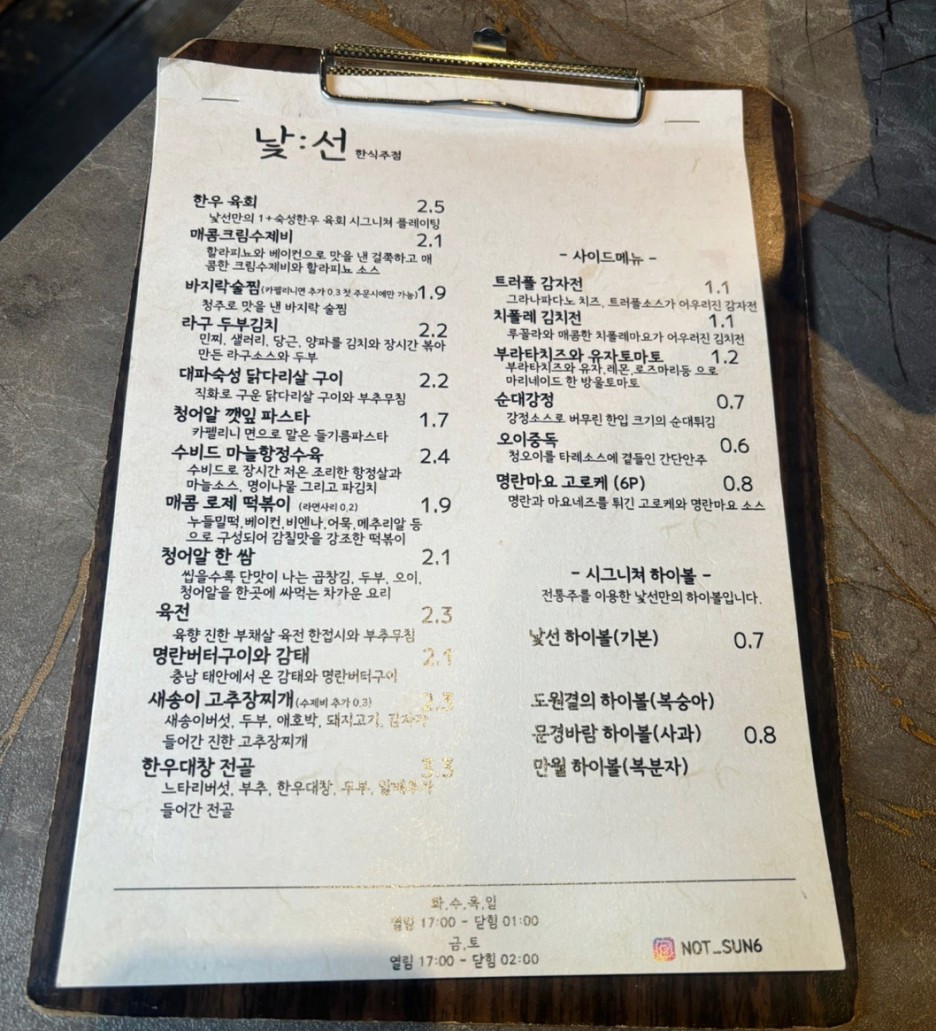 낯:선 한식주점
한우 육회 2.5
낯선만의 1+숙성한우 육회 시그니쳐 플레이팅
매콤크림수제비 2.1
할라피뇨와 베이컨으로 맛을 낸 걸쭉하고 매
콤한 크림수제비와 할라피뇨 소스
바지락술찜(카펠리니면 추가 0.3 첫 주문시에만 가능) 1.9
청주로 맛을 낸 바지락 술찜
라구 두부김치 2.2
민찌, 샐러리, 당근, 양파를 김치와 장시간 볶아
만든 라구소스와 두부
대파숙성 닭다리살 구이 2.2
직화로 구운 닭다리살 구이와 부추무침
청어알 깻잎 파스타 1.7
카펠리니 면으로 말은 들기름파스타
수비드 마늘항정수육 2.4
수비드로 장시간 저온 조리한 항정살과
마늘소스, 명이나물 그리고 파김치
매콤 로제 떡볶이 (라면사리 0.2) 1.9
누들밀떡,베이컨,비엔나,어묵,메추리알 등
으로 구성되어 감칠맛을 강조한 떡볶이
청어알 한 쌈 2.1
씹을수록 단맛이 나는 곱창김, 두부, 오이,
청어알을 한곳에 싸먹는 차가운 요리
육전 2.3
육향 진한 부채살 육전 한접시와 부추무침
명란버터구이와 감태 2.1
충남 태안에서 온 감태와 명란버터구이
새송이 고추장찌개(수제비 추가 0.3) 2.3
새송이버섯, 두부, 애호박, 돼지고기, 감자가
들어간 진한 고추장찌개
한우대창 전골 3.3
느타리버섯, 부추, 한우대창, 두부, 알배추가
들어간 전골
- 사이드메뉴 -
트러플 감자전 1.1
그라나파다노 치즈, 트러플소스가 어우러진 감자전
치폴레 김치전 1.1
루꼴라와 매콤한 치폴레마요가 어우러진 김치전
부라타치즈와 유자토마토 1.2
부라타치즈와 유자,레몬,로즈마리등 으로
마리네이드 한 방울토마토
순대강정 0.7
강정소스로 버무린 한입 크기의 순대튀김
오이중독 0.6
청오이를 타레소스에 곁들인 간단안주
명란마요 고로케 (6P) 0.8
명란과 마요네즈를 튀긴 고로케와 명란마요 소스
- 시그니쳐 하이볼 -
전통주를 이용한 낯선만의 하이볼입니다.
낯선 하이볼(기본) 0.7
도원결의 하이볼(복숭아)
문경바람 하이볼(사과) 0.8
만월 하이볼(복분자)
화,수,목,일
열림 17:00 - 닫힘 01:00
금,토
열림 17:00 - 닫힘 02:00
NOT_SUN6